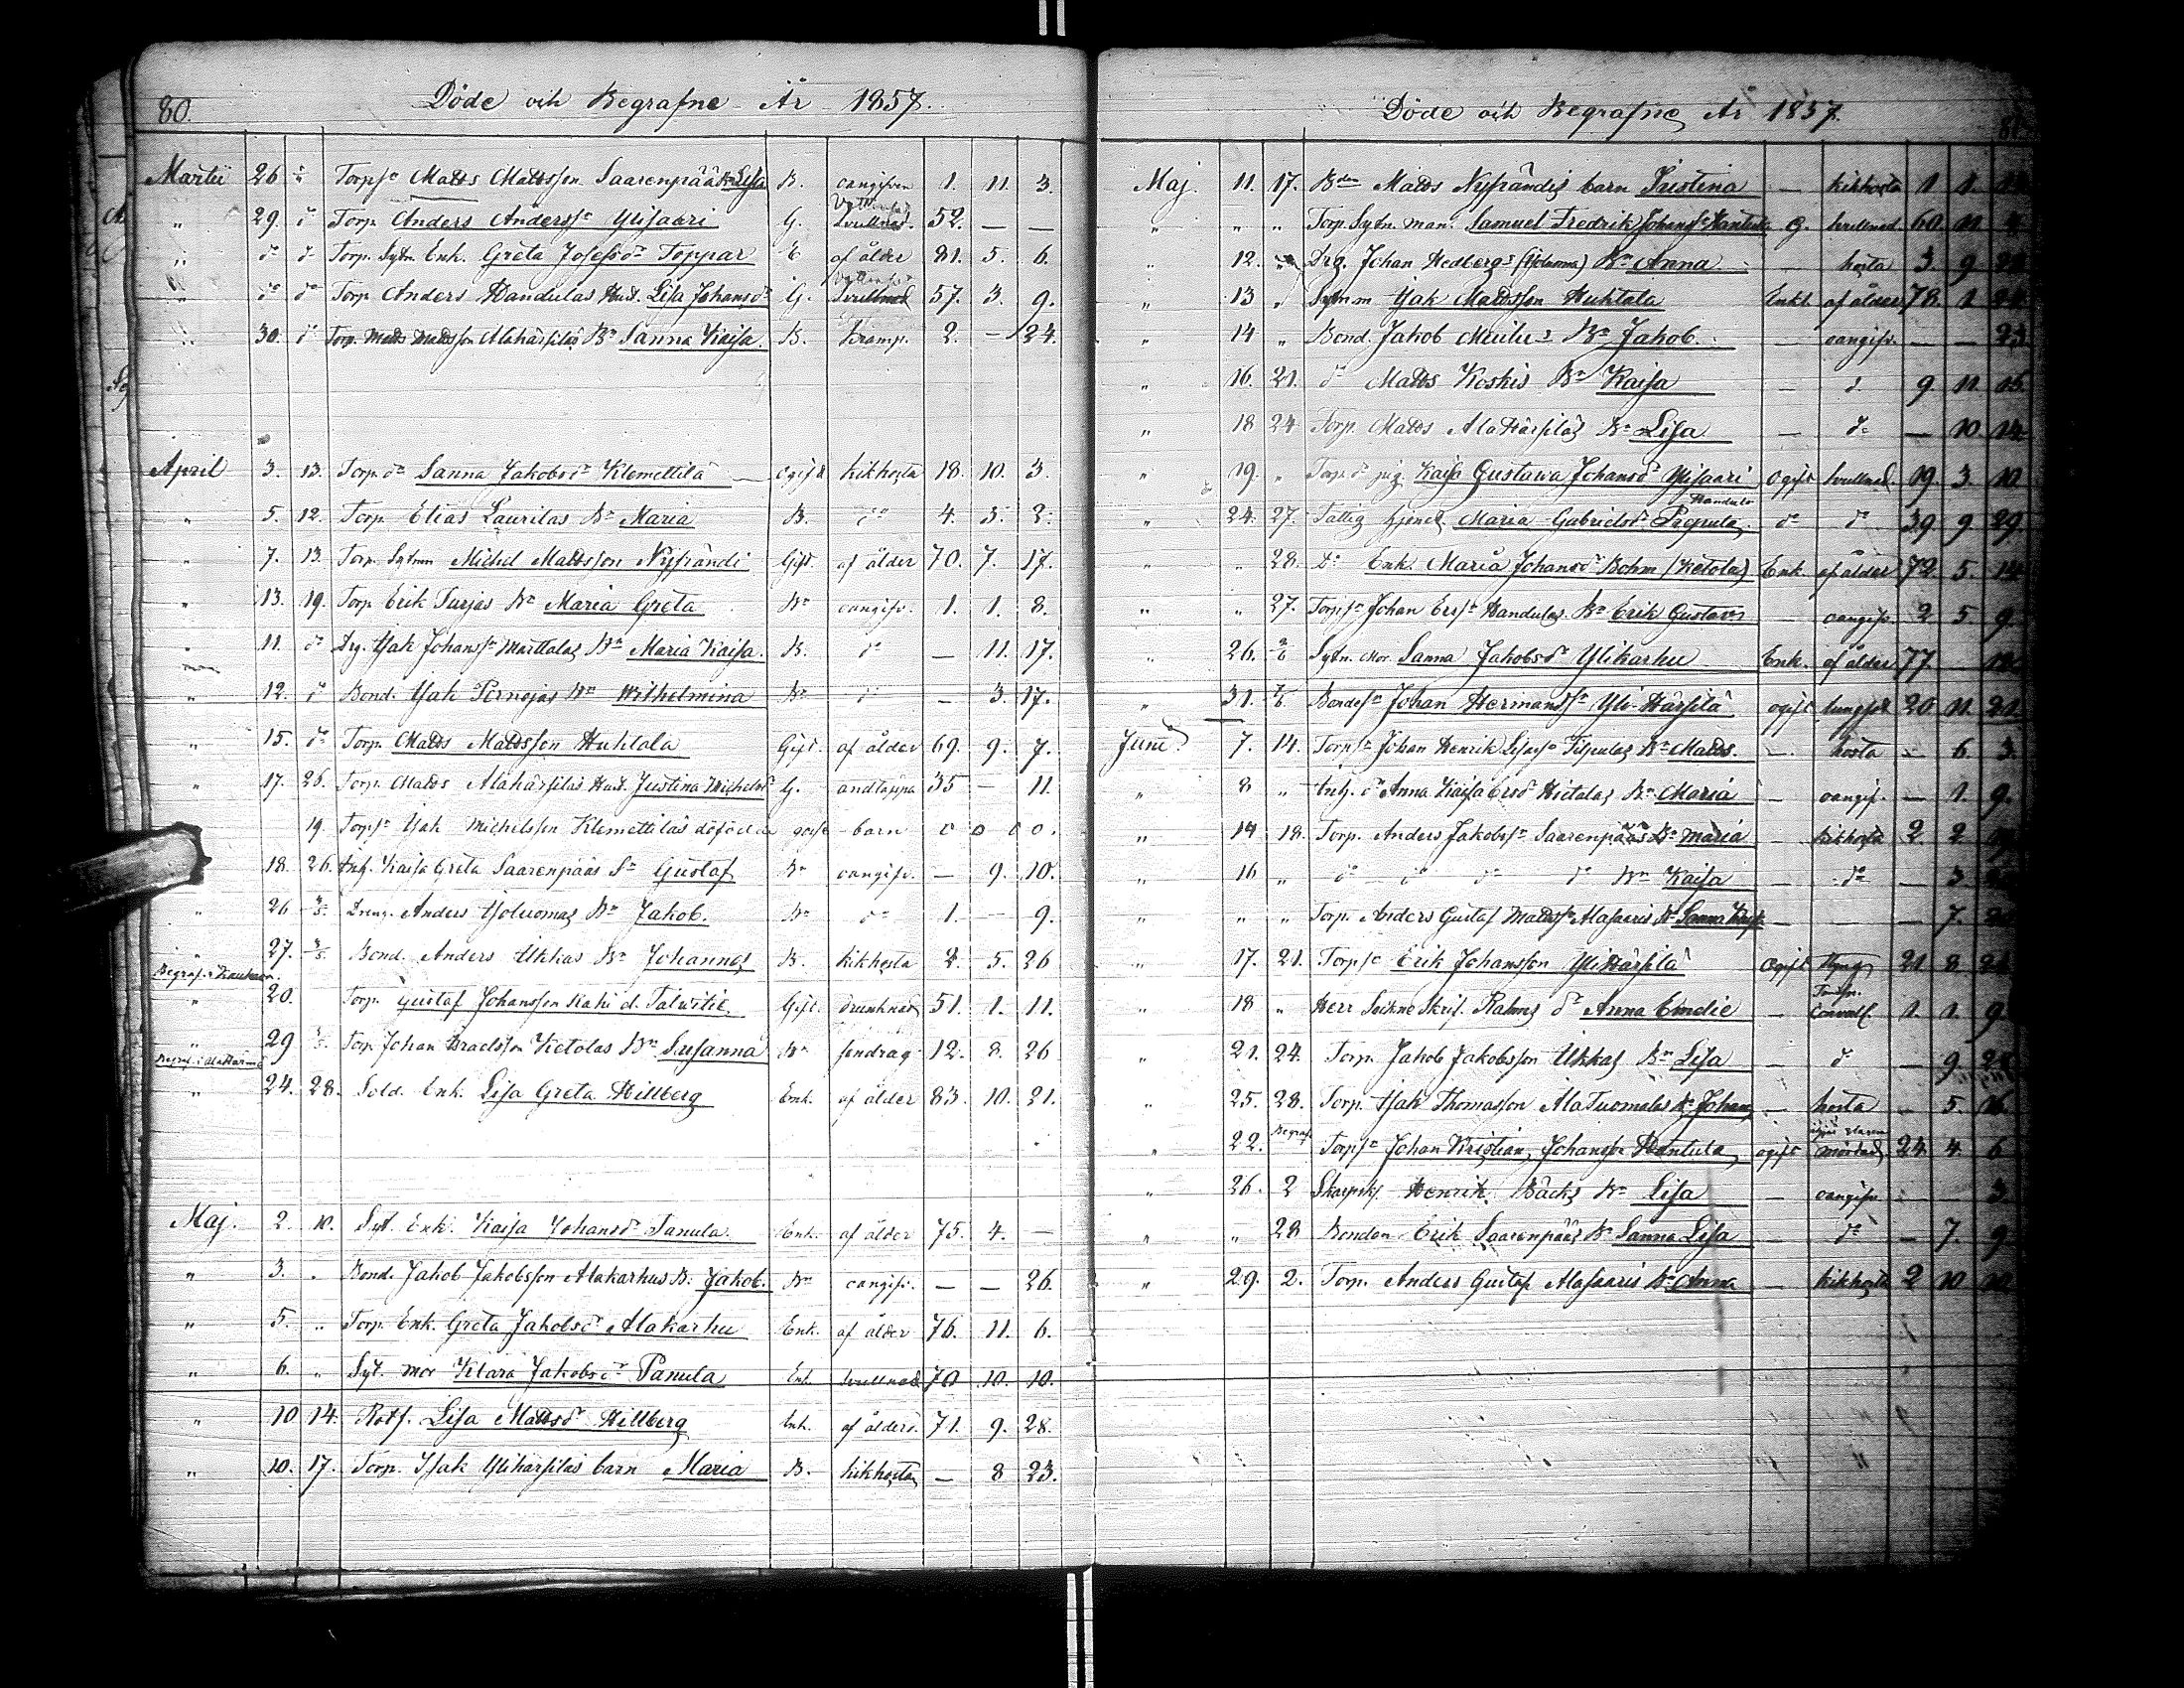 80. Döde och Begrafne År 1857.
Martii 26 Torpsn Matts Mattsson Saarenpääs Lisa B. oangifven 1. 11. 3.
" 29. dn Torp. Anders Anderssn Ylisaari G. Svullnad. 52. — —
" dn dn Torp. Sytn. Enk. Greta Josefsdr Toppar E af ålder 81. 5. 6.
" dn dn Torp Anders Handulas Hust. Lisa Johansdr G. Svullnad 57. 3. 9.
" 30. dn Torp. Matts Mattsson Alahärsiläs Bn Sanna Kaisa. B. Kramp. 2. — 24.
April 3. 13. Torp. dr Sanna Jakobsdr Klemettilä ogift kikhosta 18. 10. 3.
" 5. 12. Torp Elias Laurilas Bn Maria B. dn 4. 3.
" 7. 13. Torp. Sytmn Michel Mattsson Nysrändi Gift. af ålder 70. 7. 17.
" 13. 19. Torp Erik Turjas Bn Maria Greta Bn oangifv. 1. 1. 8.
" 11. dn Drg. Isak Johanssn Marttalas Bn Maria Kaisa. B. dn — 11. 17.
" 12. dn Bond. Isak Pernejas Bn Wilhelmina Bn dn — 3. 17.
" 15. dn Torp. Matts Mattsson Huhtala Gift. af ålder 69. 9. 7.
" 17. 26. Torp. Matts Alahärsiläs Hust. Justina Michelsdr G. andtäppa 35 — 11.
19. Torpsn Isak Michelsson Klemettiläs dödfödda barn 0 0 0 0.
18. 26. Inh. Kaisa Greta Saarenpääs Sn Gustaf Bn oangifv. — 9. 10.
" 26 3/5. Dreng. Anders Isoluomas Bn Jakob. Bn dn 1. — 9.
" 27. 3/5. Bond. Anders Ukkas Bn Johannes B. kikhosta 2. 5. 26
Begraf. i Kauhava.
" 20. Torp. Gustaf Johansson Kahi d. Talvitie. Gift. drunknad 51. 1. 11.
" 29 Torp Johan Israelsson Ketolas Bn Susanna Bn sendrag 12. 8. 26
Begraf. i Alahärmä
" 24. 28. Sold. Enk. Lisa Greta Hillberg Enk. af ålder 83. 10. 21.
Maj. 2. 10. Syt. Enk. Kaisa Johansdr Panula. Enk. af ålder 75. 4. —
" 3. " Bond. Jakob Jakobsson Alakarhus B. Jakob. Bn oangifv. — — 26.
" 5. " Torp. Enk. Greta Jakobsdr Alakarhu Enk. af ålder 76. 11. 6.
" 6. " Syt. mor Klara Jakobsdr Panula Enk. Svullnad 70 10. 10.
" 10 14. Rotf. Lisa Mattsdr Hillberg Enk. af ålderd. 71. 9. 28.
" 10. 17. Torp. Isak Ylihärsiläs barn Maria B. kikhosta — 8 23.
Döde och Begrafne År 1857.
Maj. 11. 17. Bden Matts Nysrändis barn Justina — kikhosta 1 1.
" " " Torp. Sytn. man. Samuel Fredrik Johanssn Hantula G. svullnad. 60. 11. 4
" 12. " Drg. Johan Hedbergs (Isoluoma) Bn Anna — hosta 3. 9
" 13 " Sytnm Isak Mattsson Huhtala Enkl. af ålder 78. 1
" 14 " Bond. Jakob Bn Jakob. — oangifv. — — 23
" 16. 21. dn Matts Koskis Bn Kaisa — dn 9. 11. 15.
" 18 24 Torp. Matts Ala Härsiläs Bn Lisa — dn — 10. 12
" 19. " Torp. dr pig. Kaisa Gustawa Johansdr Ylisaari ogift svullnad. 19. 3. 10
Handula
" 24. 27. Fattig hjonet Maria Gabrielsdr Prepula dn dn 39. 9 29.
" " 28. Dn Enk. Maria Johansdr Bohm (Ketola) Enk. af ålder 72. 5. 14
" " 27. Torpsn Johan Erssn Handulas Bn Erik Gustav — oangifv. 2 5 9
" 26. 2/6 Sytn. Mor. Sanna Jakobsdr Ylikarhu Enk. af ålder 77.
" 31. 7/6 Bondesn Johan Hermanssn Yli-Härsilä ogift lungsot 20 11.
Juni 7. 14. Torpsn Johan Henrik Bn Matts. — hosta — 6. 3.
" 8 " Inh. dr Anna Kaisa Ersdr Hietalas Bn Maria — oangif. — 1. 9.
" 14 18. Torp. Anders Jakobssn Saarenpääs Bn Maria — kikhosta 2. 2
" 16 " dn dn dn dn Bn Kaisa — dn — 3.
" " " Torp. Anders Gustaf Mattssn Alasaaris Bn Sanna Kaisa — — 7.
" 17. 21. Torpsn Erik Johansson YliHärsilä ogift 21. 8
" 18 " Herr Sockne Skrif. Ralms dr Anna Emelie — Convuls. 1. 1. 9
" 21. 24. Torp. Jakob Jakobsson Ukkas Bn Lisa — dn — 9.
" 25. 28. Torp. Isak Thomasson AlaTuomalas Bn Johan — hosta — 5. 16.
" 22. Begraf. Torpsn Johan Kristian Johanssn Hantula ogift mördad 24. 4. 6
" 26. 2 Skarprsk. Henrik Bäcks Bn Lisa — oangifv. 3
" " 28 Bonden Erik Saarenpääs Bn Sanna Lisa — dn — 7. 9
" 29. 2. Torp. Anders Gustaf Alasaaris Bn Anna — kikhosta 2 10 10